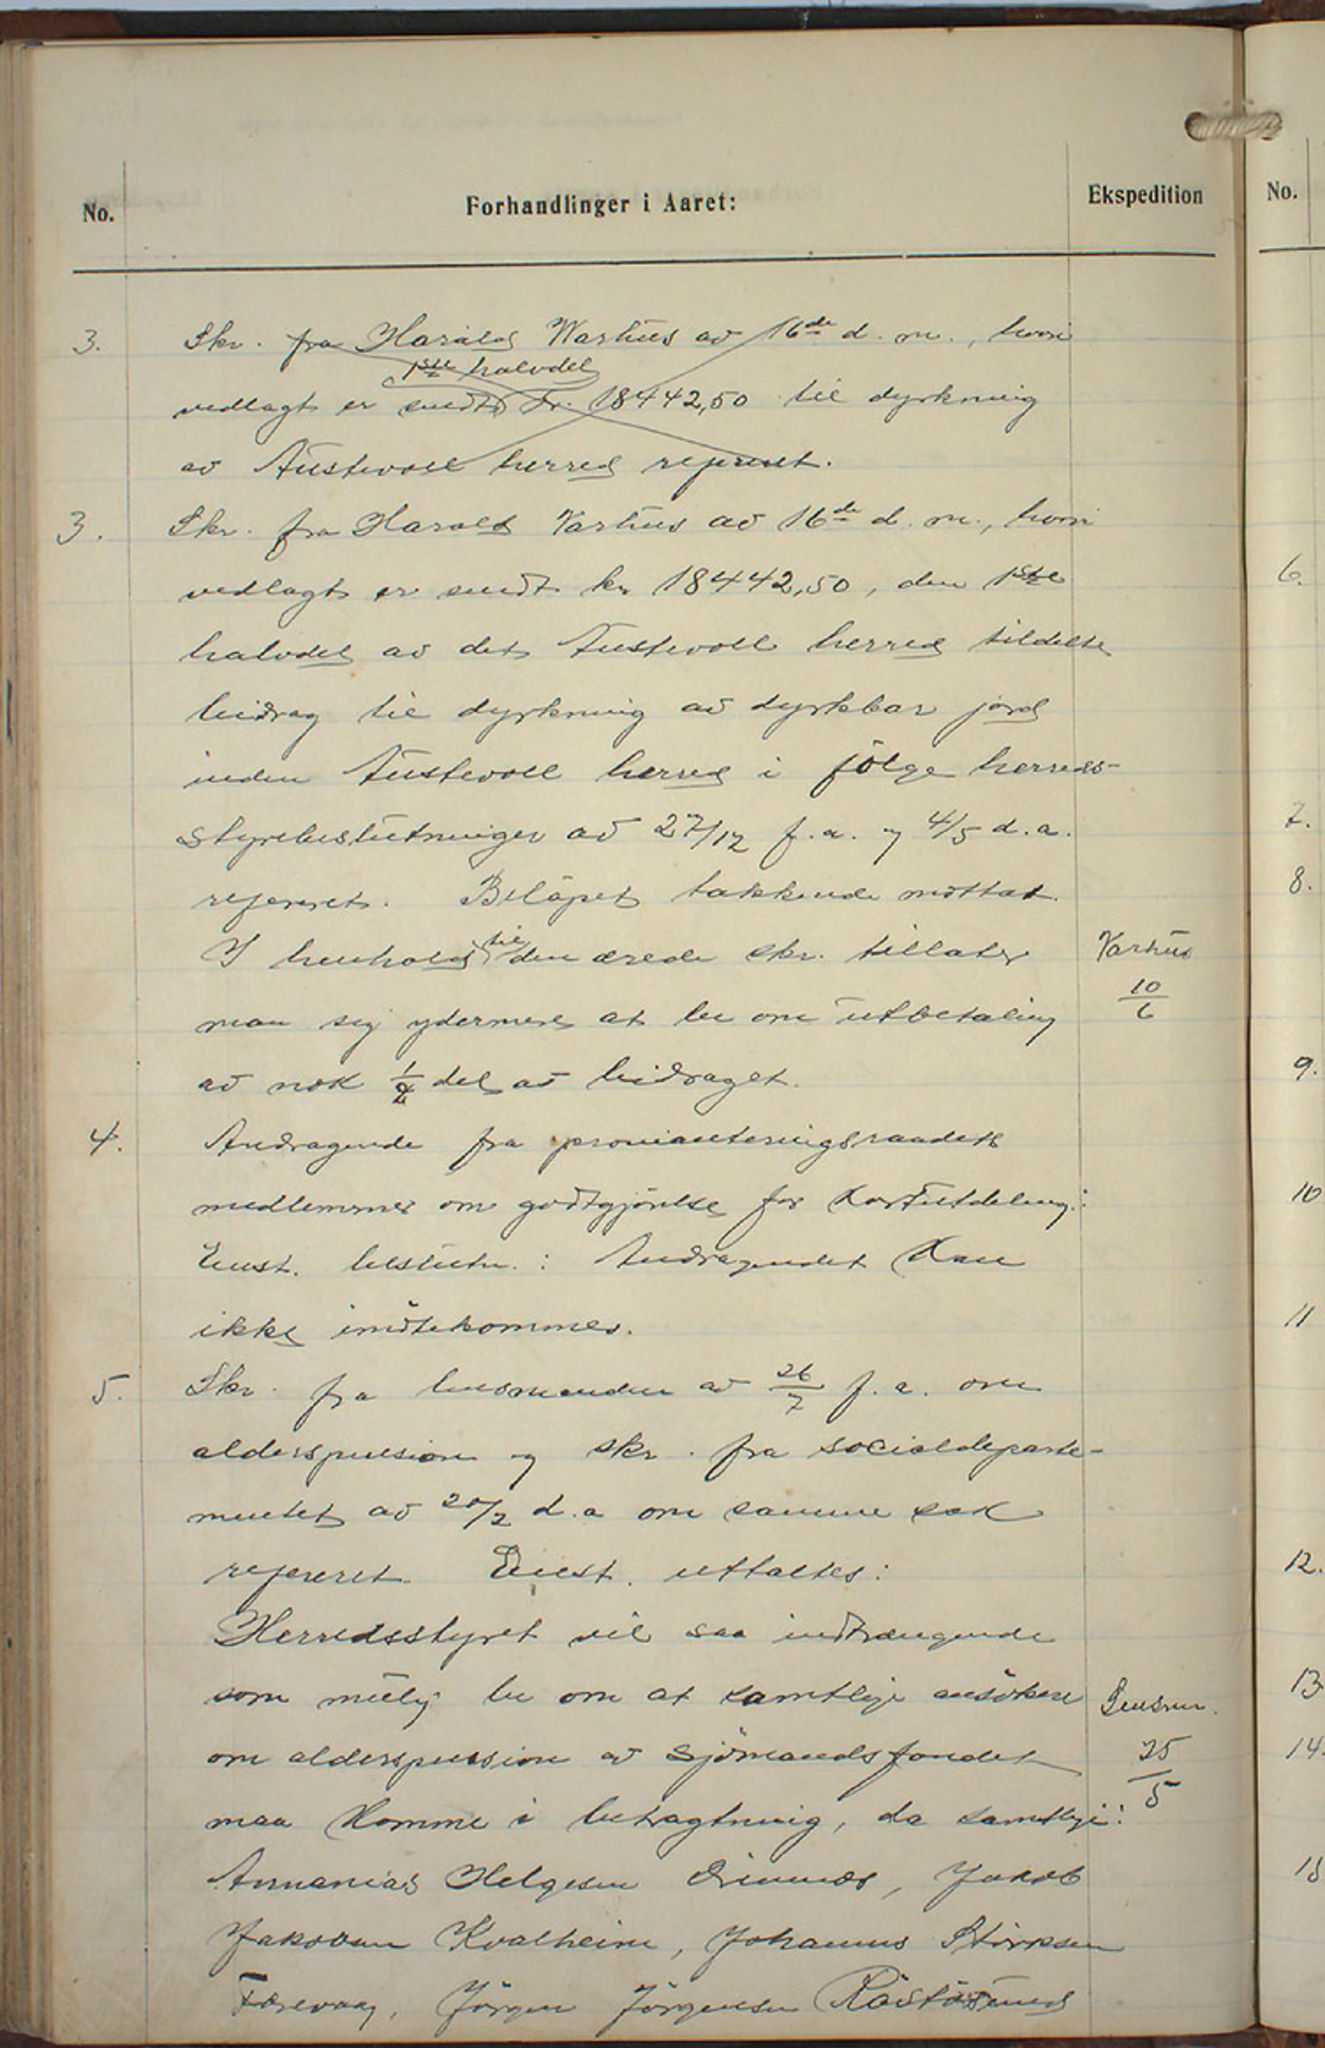 No. Forhandlinger i Aaret: Ekspedition No.
3. Skr. fra Harald Warhus av 16de d. m., hvori
1ste halvdel
vedlagt er sendt kr. 18442,50 til dyrkning
av Austevoll herred referert.
3. Skr. fra Harald Varhus av 16de d. m., hvori
vedlagt er sendt kr 18442,50, den 1ste
halvdel av det Austevoll herred tildelte
bidrag til dyrkning av dyrkbar jord
inden Austevoll herred i følge herreds-
styrebeslutninger av 27/12 f. a. og 4/5 d. a.
referert. Beløpet takkende mottat.
I henhold til den ærede skr. tillater
man sig ydermere at be om utbetaling
av nok 1/2 del av bidraget.
Varhus
10/6
4. Andragende fra provianteringsraadets
medlemmer om godtgjørelse for kortutdeling:
Enst. beslutn.: Andragendet kan
ikke imøtekommes.
5. Skr. fra lensmanden av 26/7 f. a. om
alderspension og skr. fra socialdeparte-
mentet av 20/2 d. a om samme sak
referert. Enst. uttaltes:
Herredsstyret vil saa indtrængende
som mulig be om at samtlige ansøkere
om alderspension av sjømandsfondet
maa komme i betragtning, da samtlige:
Lensm.
25/5
Annanias Helgesen Drinnes, Jakob
Jakobsen Kvalheim, Johannes Størksen
Færevaag, Jørgen Jørgensen Røstøsund
6.
7.
8.
9.
10
11
12.
13
14.
15